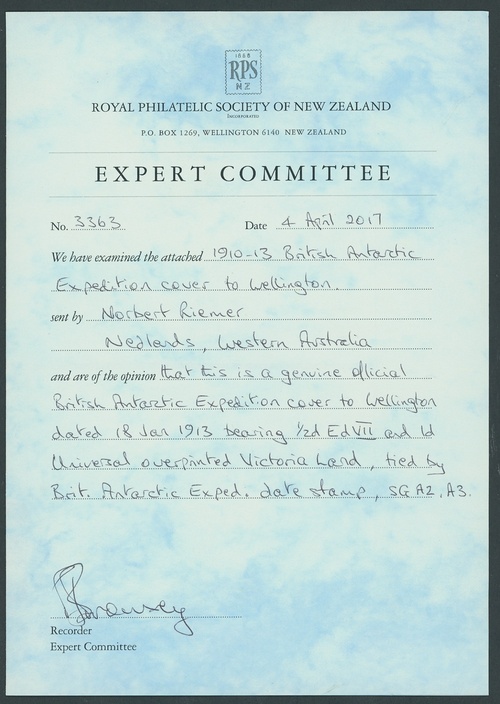 1888
RPS
NZ
ROYAL PHILATELIC SOCIETY OF NEW ZEALAND
INCORPORATED
P.O. BOX 1269, WELLINGTON 6140 NEW ZEALAND
EXPERT COMMITTEE
No. 3363 Date 4 April 2017
We have examined the attached 1910-13 British Antarctic
Expedition cover to Wellington.
sent by Norbert Riemer
Nedlands, Western Australia
and are of the opinion that this is a genuine official
British Antarctic Expedition cover to Wellington
dated 18 Jan 1913 bearing ½d Ed VII and 1d
Universal overprinted Victoria Land, tied by
Brit. Antarctic Exped. date stamp, SG A2, A3.
Recorder
Expert Committee